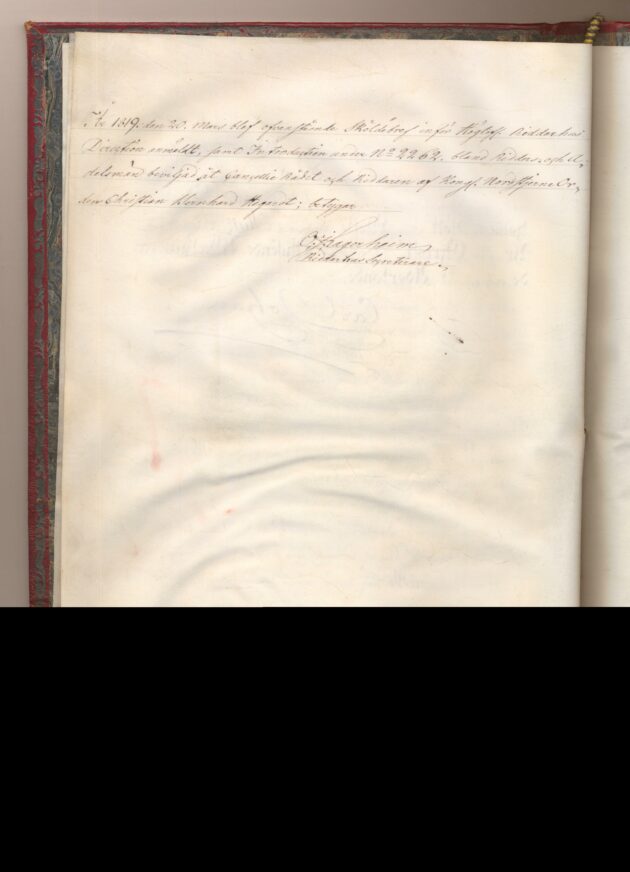 År 1819. den 20. Mars blef ofvanstående Sköldebref inför Höglofl. Riddarhus
Direction anmäldt, samt Introduction under No 2262. bland Riddar- och A-
delsmän beviljad åt Cancellie Rådet och Riddaren af Kongl. Nordstjerne Or-
den Christian Bernhard; betygar
Riddarhus Secreterare.